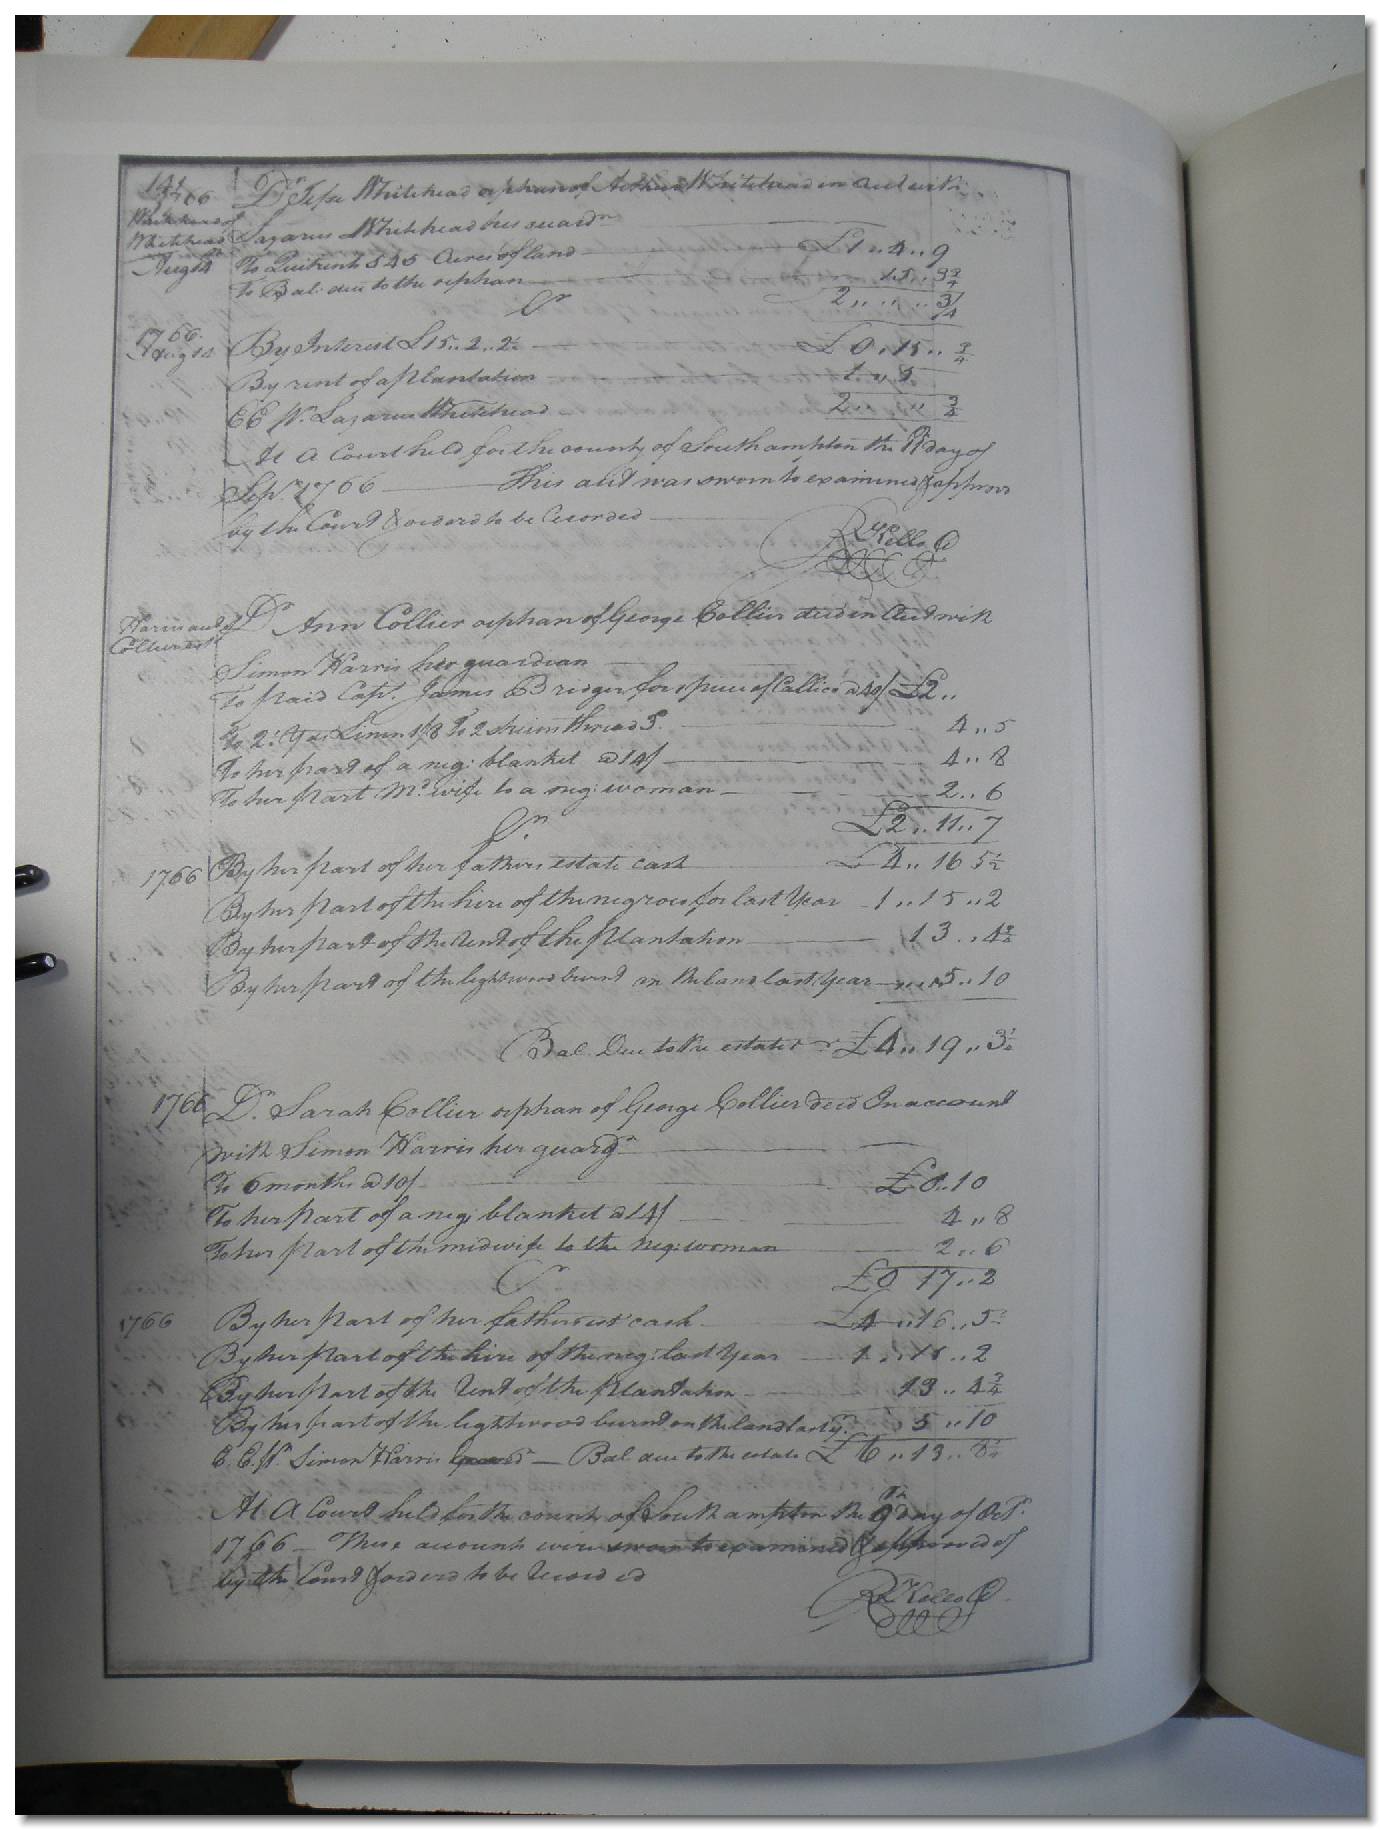 141
1766
Whitehead of
Whitehead
Aug 14
Dr Jesse Whitehead orphan of Arthur Whitehead in acct with
Lazarus Whitehead his guardn
To Quitrents 545 Acres of land £1..4..9
To Bal. due to the orphan 15..3¾
2,, ,, ..3/4
Cr
1766
Aug 14
By Interest £15..2..2½ £0,,15..¾
By rent of a Plantation 1,,5
EE Pr. Lazarus Whitehead 2.. ,, ¾
At a Court held for the county of Southampton the 11th day of
Sepr. 1766 This acct was sworn to examined & approvd
by the Court & orderd to be Recorded
Rd Kello Cl
Harris and of
Collier est
Dr Ann Collier orphan of George Collier decd in Acct with
Simon Harris her guardian
To paid Capt. James Bridger for 1 piece of Callico @ 40/ £2..
To 2½ Yds Linen 1/8 To 2 skeins thread 3. 4,,5
To her part of a neg: blanket @ 14/ 4,,8
To her part Md. wife to a neg: woman 2..6
£2,,11,,7
Cr
1766 By her part of her fathers estate cash £4,,16 5½
By her part of the hire of the negroes for last Year 1..15..2
By her part of the Rent of the Plantation 13..4¾
By her part of the lightwood burnt on the land last Year 5..10
Bal. Due to the estate £4,,19,,3½
1766 Dr. Sarah Collier orphan of George Collier decd In account
with Simon Harris her guardn
To 6 months @ 10/ £0..10
To her part of a neg: blanket @ 14/ 4,,8
To her part of the midwife to the neg: woman 2..6
£0 17..2
Cr
1766 By her part of her fathers est cash £4,,16..5½
By her part of the hire of the neg: last Year 1,,15..2
By her part of the Rent of the Plantation 13..4¾
By her part of the lightwood burnt on the land last yr. 5,,10
E.E. Pr Simon Harris guard — Bal due to the estate £6,,13..8½
At a Court held for the county of Southampton the 9th day of Oct.
1766 — These accounts were sworn to examined & approved of
by the Court & orderd to be Recorded
Rd Kello Cl